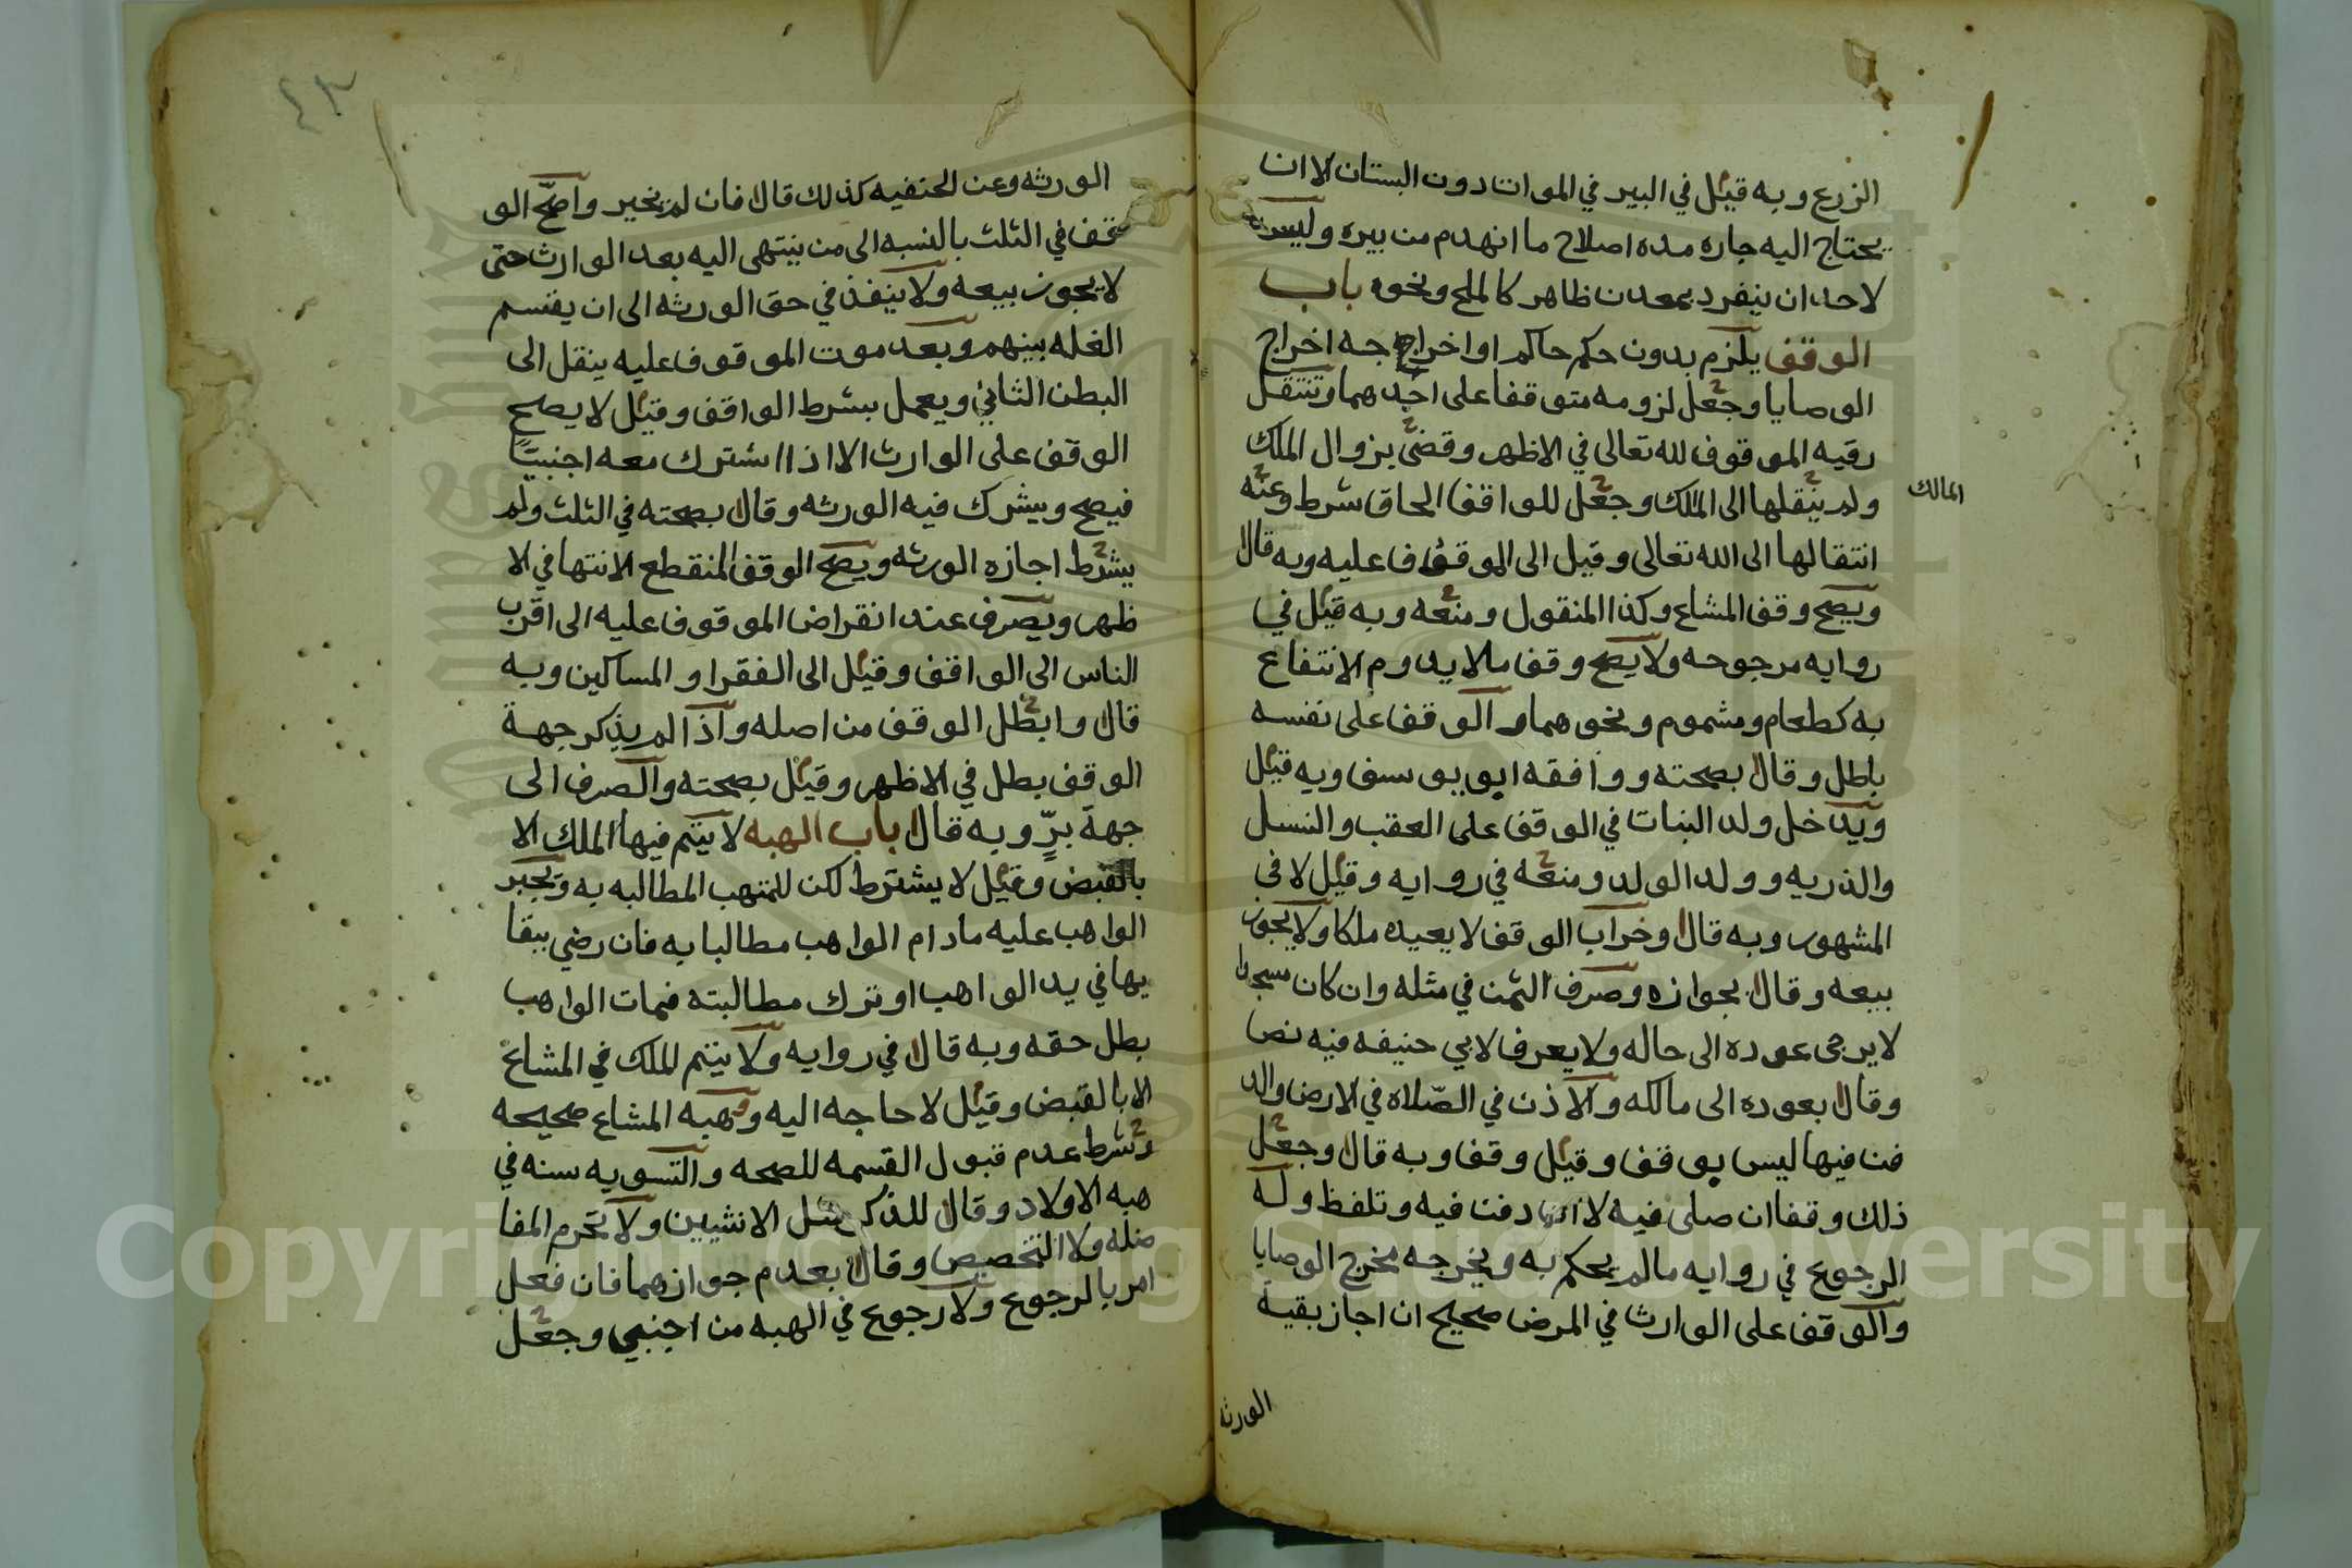 الزرع وبه قيل في البير في الموات دون البستان الا ان
يحتاج اليه جاره مده اصلاح ما انهدم من بيره وليس
لاحد ان ينفرد بمعدن ظاهر كالملح ونحوه باب
الوقف يلزم بدون حكم حاكم او اخراجه اخراج
الوصايا وجعل لزومه متوقفا على احدهما وتنتقل
رقبه الموقوف لله تعالى في الاظهر وقضى بزوال الملك
ولم ينقلها الى الملك وجعل للواقف الحاق شرط وعنه
المالك
انتقالها الى الله تعالى وقيل الى الموقوف عليه وبه قال
ويصح وقف المشاع وكذا المنقول ومنعه وبه قيل في
روايه مرجوحه ولا يصح وقف مالا يدوم الانتفاع
به كطعام ومشموم ونحوهما والوقف على نفسه
باطل وقال بصحته ووافقه ابو يوسف وبه قيل
ويدخل ولد البنات في الوقف على العقب والنسل
والذريه وولد الولد ومنعه في روايه وقيل لا في
المشهور وبه قال وخراب الوقف لا يعيده ملكا ولا يجوز
بيعه وقال بجوازه وصرف الثمن في مثله وان كان مسجدا
لا يرجى عوده الى حاله ولا يعرف لابي حنيفه فيه نص
وقال بعوده الى مالكه والاذن في الصّلاه في الارض والد
فن فيها ليس بوقف وقيل وقف وبه قال وجعل
ذلك وقفا ان صلى فيه لا ان دفن فيه وتلفظ وله
الرجوع في روايه مالم يحكم به ويخرجه مخرج الوصايا
والوقف على الوارث في المرض صحيح ان اجاز بقية
الورثه
٤٣
الورثه وعن الحنفيه كذلك قال فان لم نخير واصحّ الو
قف في الثلث بالنسبه الى من ينتهى اليه بعد الوارث حتى
لا يجوز بيعه ولا ينفذ في حق الورثه الى ان يقتسم
الغله بينهم وبعد موت الموقوف عليه ينقل الى
البطن الثاني ويعمل بشرط الواقف وقيل لا يصح
الوقف على الوارث الا اذا اشترك معه اجنبيًا
فيصح ويشرك فيه الورثه وقال بصحته في الثلث ولم
يشرط اجازه الورثه ويصح الوقف المنقطع الانتها في الا
ظهر ويصرف عند انقراض الموقوف عليه الى اقرب
الناس الى الواقف وقيل الى الفقرا والمساكين وبه
قال وابطل الوقف من اصله واذا لم يذكر جهة
الوقف بطل في الاظهر وقيل بصحته والصرف الى
جهة برٍّ وبه قال باب الهبه لا يتم فيها الملك الا
بالقبض وقيل لا يشترط لكن للمتهب المطالبه به ويجبر
الواهب عليه مادام الواهب مطالبا به فان رضي ببقا
يها في يد الواهب او ترك مطالبته فمات الواهب
بطل حقه وبه قال في روايه ولا يتم الملك في المشاع
الا بالقبض وقيل لا حاجه اليه وهبه المشاع صحيحه
وشرط عدم قبول القسمه للصحه والتسويه سنه في
هبه الاولاد وقال للذكر مثل الانثيين ولا تحرم المفا
ضله ولا التخصيص وقال بعدم جوازهما فان فعل
امر بالرجوع ولا رجوع في الهبه من اجنبي وجعل
Copyright © King Saud University